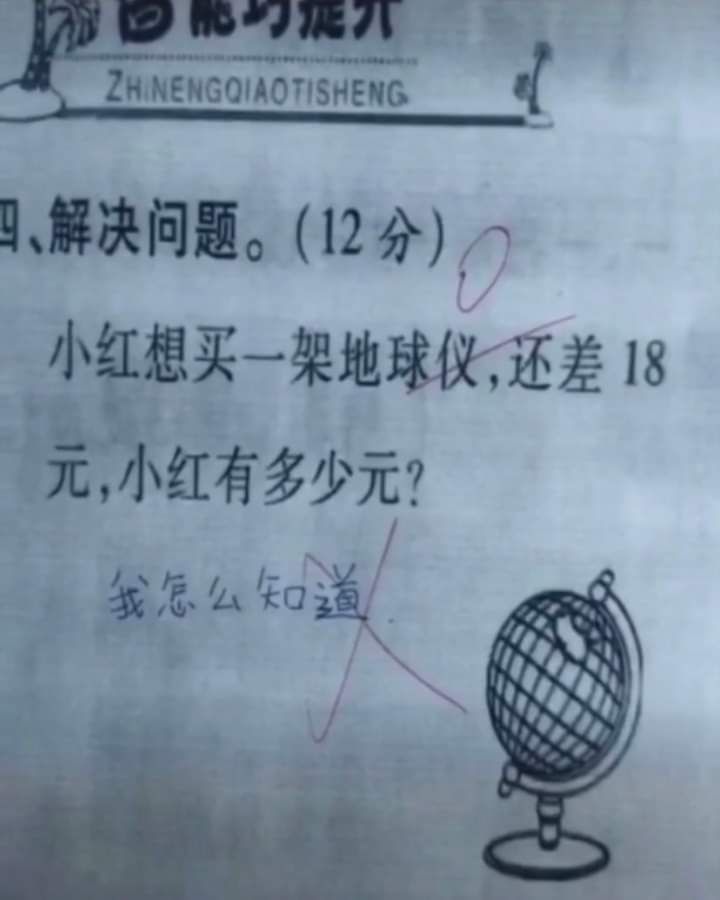 智能巧提升
ZHINENGQIAOTISHENG
四、解决问题。(12分)
0
小红想买一架地球仪,还差18
元,小红有多少元?
我怎么知道.